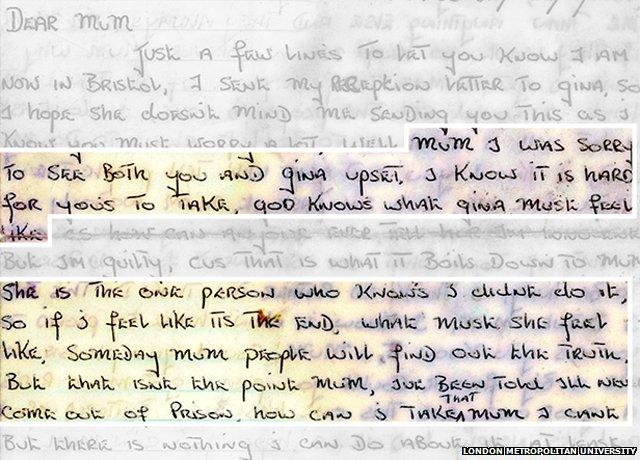 DEAR MUM
JUST A FEW LINES TO LET YOU KNOW I AM
NOW IN BRISTOL, I SENT MY RECEPTION LETTER TO GINA, SO
I HOPE SHE DOESN'T MIND ME SENDING YOU THIS AS I
KNOW YOU MUST WORRY A LOT. WELL MUM I WAS SORRY
TO SEE BOTH YOU AND GINA UPSET. I KNOW IT IS HARD
FOR YOUS TO TAKE, GOD KNOWS WHAT GINA MUST FEEL
LIKE HOW CAN ANYONE EVER TELL HER I'M INNOCENT
BUT I'M GUILTY, CUS THAT IS WHAT IT BOILS DOWN TO MUM
SHE IS THE ONE PERSON WHO KNOWS I DIDNT DO IT,
SO IF I FEEL LIKE ITS THE END, WHAT MUST SHE FEEL
LIKE. SOMEDAY MUM PEOPLE WILL FIND OUT THE TRUTH.
BUT THAT ISNT THE POINT MUM, IVE BEEN TOLD ILL NEV
COME OUT OF PRISON, HOW CAN IS TAKE THAT MUM I CANT
BUT THERE IS NOTHING I CAN DO ABOUT IT AT LEAST
LONDON METROPOLITAN UNIVERSITY